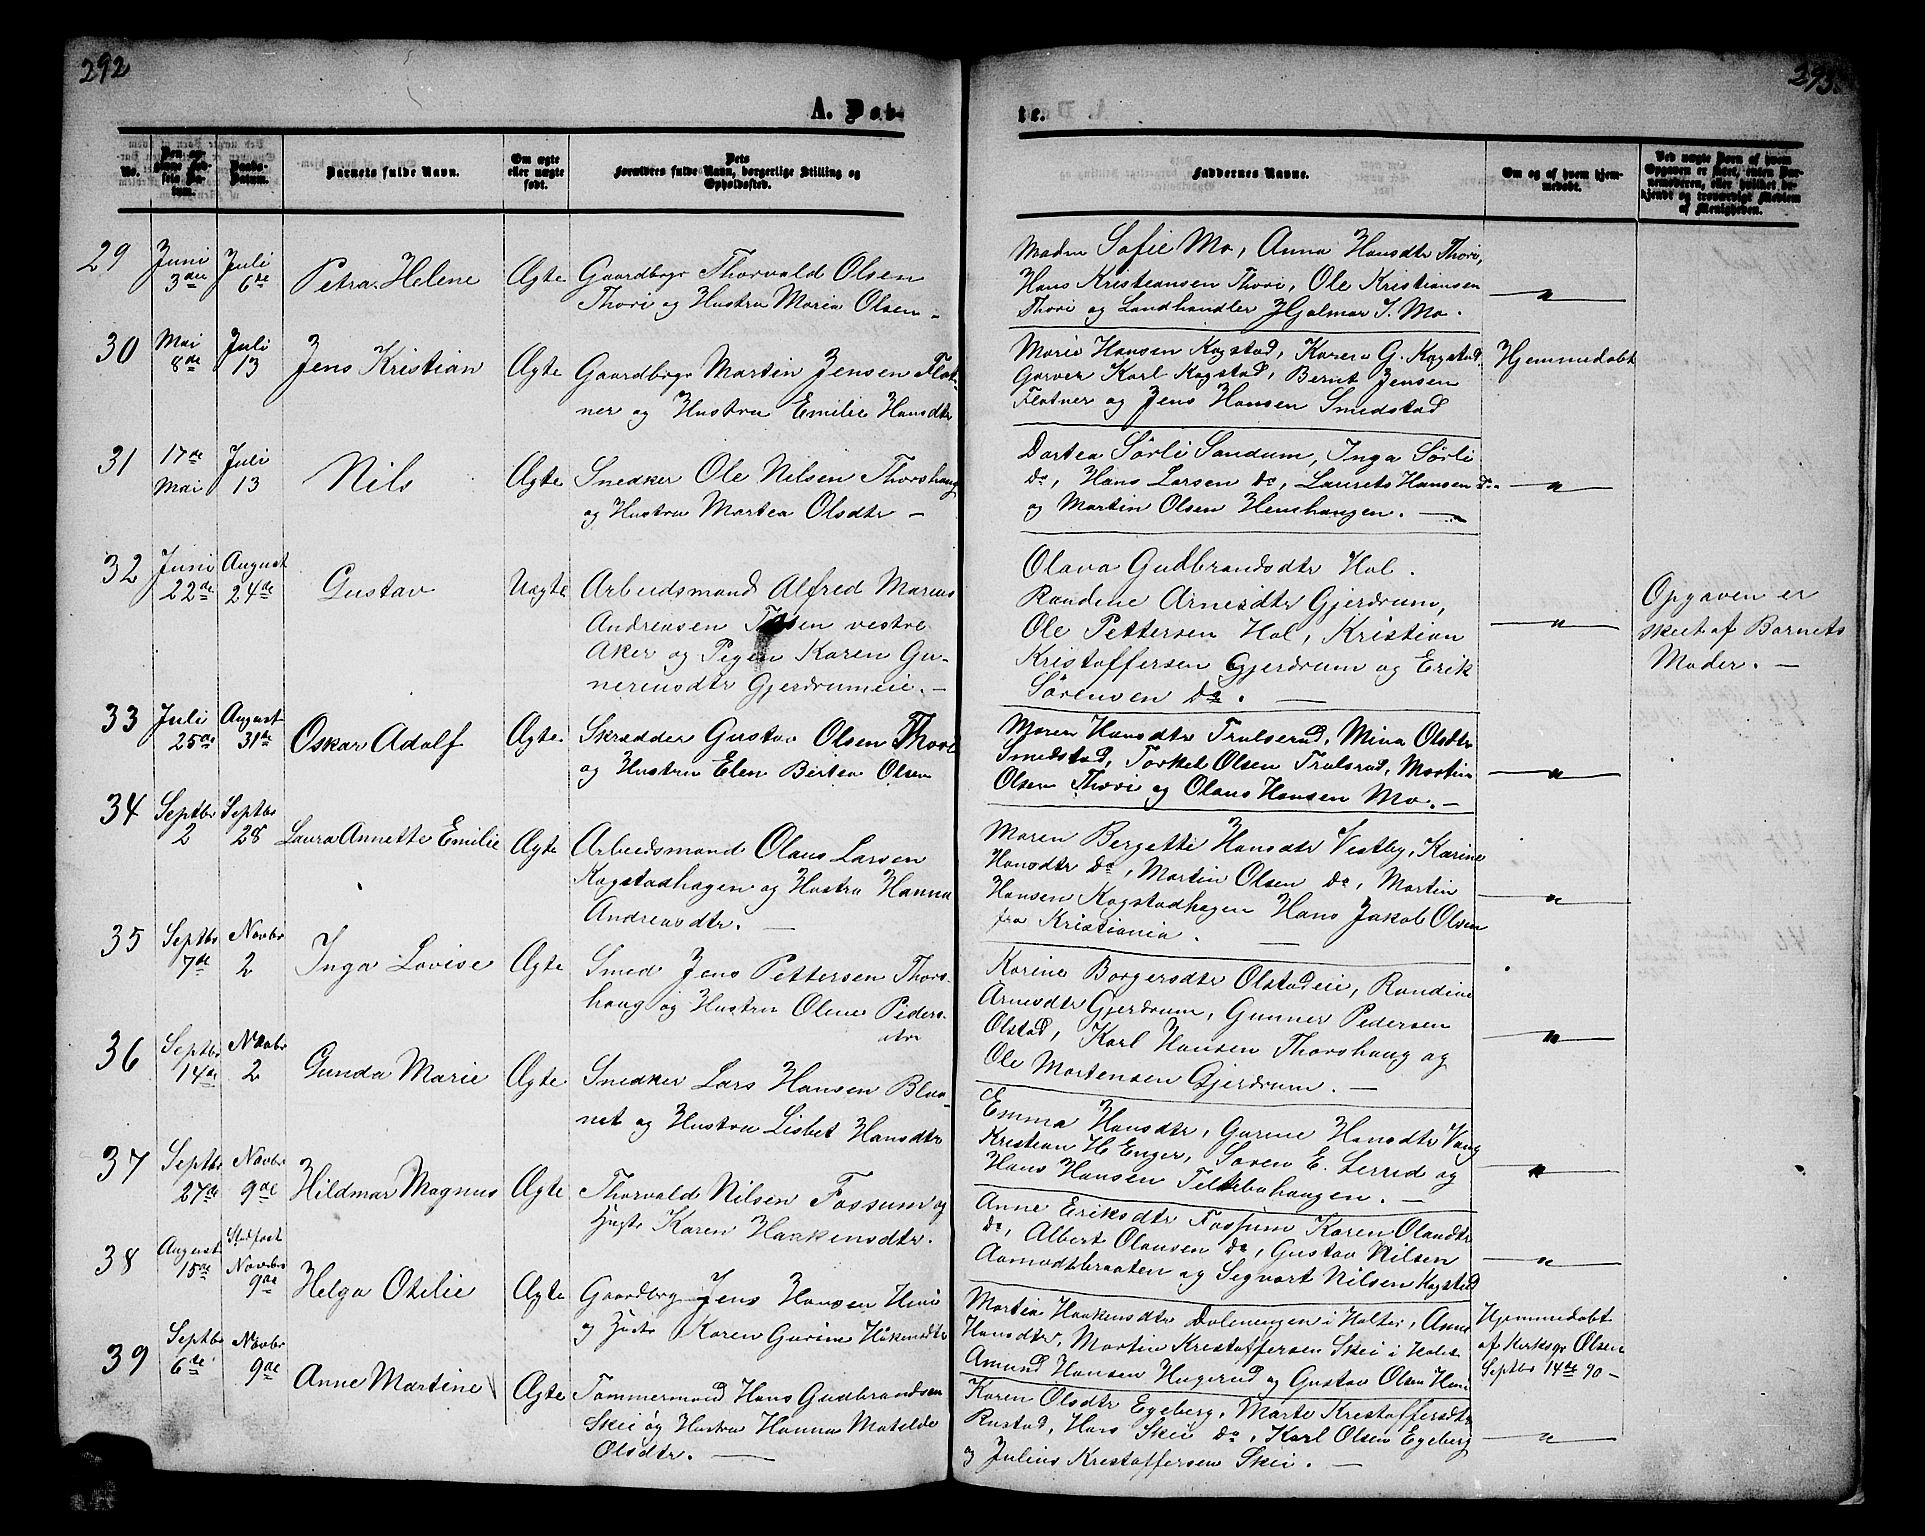 292
293
A. Dob-
te.
No.
Barnets fulde Navn.
Om ægte
eller uægte
født.
Dets
Forældres fulde Navn, borgerlige Stilling og
Opholdssted.
Faddernes Navne.
Om og af hvem hjem-
medøbt.
29
Juni
3die
Juli
6te
Petra Helene
Ægte
Gaardbrgr Thorvald Olsen
Thori og Hustru Maria Olsen.
Madm Sofie Mo, Anna Hansdtr Thori,
Hans Kristiansen Thori, Ole Kristiansen
Thori og Landhandler Hjalmar J. Mo.
30
Mai
8de
Juli
13
Jens Kristian
Ægte
Gaardbrgr Martin Jensen Flat-
ner og Hustru Emilie Hansdtr
Marie Hansen Kogstad, Karen G. Kogstad,
Garver Karl Kogstad, Bernt Jensen
Flatner og Jens Hansen Smedstad
Hjemmedøbt
31
17de
Mai
Juli
13
Nils
Ægte
Snedker Ole Nilsen Thorshaug
og Hustru Martea Olsdtr –
Dortea Sørli Sandum, Inga Sørli
do, Hans Larsen do, Laurets Hansen do
og Martin Olsen Henshaugen. –
32
Juni
22de
August
24de
Gustav
Uægte
Arbeidsmand Alfred Marius
Andreasen vestre
Aker og Pigen Karen Gu-
nerensdtr Gjerdrumeie. –
Olava Gudbrandsdtr Hol.
Randine Arnesdtr Gjerdrum,
Ole Pettersen Hol, Kristian
Kristoffersen Gjerdrum og Erik
Sørensen do. –
Opgaven er
skeet af Barnets
Moder. –
33
Juli
25de
August
31te
Oskar Adolf
Ægte
Skrædder Gustav Olsen Thori
og Hustru Elen Birtea Olsen
Maren Hansdtr Trulserud, Mina Olsdtr
Smedstad, Torkel Olsen Trulsrud, Martin
Olsen Thori og Olaus Hansen Mo. –
34
Septbr
2
Septbr
28
Laura Annette Emilie
Ægte
Arbeidsmand Olaus Larsen
Kogstadhagen og Hustru Hanna
Andreasdtr. –
Maren Bergette Hansdtr Vestby, Karine
Hansdtr do, Martin Olsen do, Martin
Hansen Kogstadhagen Hans Jakob Olsen
fra Kristiania. –
35
Septbr
7de
Novbr
2
Inga Lovise
Ægte
Smed Jens Pettersen Thors-
haug og Hustru Oline Peders-
dtr
Karine Borgersdtr Olstadeie, Randine
Arnesdtr Gjerdrum, Gunner Pedersen
Olstad, Karl Hansen Thorshaug og
Ole Mortensen Gjerdrum. –
36
Septbr
14de
Novbr
2
Gunda Marie
Ægte
Snedker Lars Hansen Blaa-
net og Hustru Lisbet Hansdtr
Emma Hansdtr, Gurine Hansdtr Vang
Kristian H Enger, Soren E. Lerud og
Hans Hansen Teltebohaugen. –
37
Septbr
27de
Novbr
9de
Hildmar Magnus
Ægte
Thorvald Nilsen Fossum og
Hust. Karen Haakensdtr.
Anne Eriksdtr Fossum Karen Olausdtr
do, Albert Olausen do, Gustav Nilsen
Aamodtbraaten og Segvart Nilsen Kogstad
38
August
15de
Novbr
9de
Helga Otilie
Ægte
Gaardbrg Jens Hansen Hønie
og Hust. Karen Gurine Håkensdtr
Martia Haakensdtr Dalenengen i Holter, Anne
Hansdtr, Martin Kristoffersen Skei i Holter
Amund Hansen Hugerud og Gustav Olsen
Hjemmedøbt
af Kirksgr Olsen
Septbr 14de 90 –
39
Septbr
6te
Novbr
9de
Anne Martine
Ægte
Tømmermand Hans Gudbrandsen
Skei og Hustru Hanna Matilde
Olsdtr. –
Karen Olsdtr Egeberg, Marte Kristoffersdtr
Rustad, Hans Skei do, Karl Olsen Egeberg
og Julius Kristoffersen Skei. –